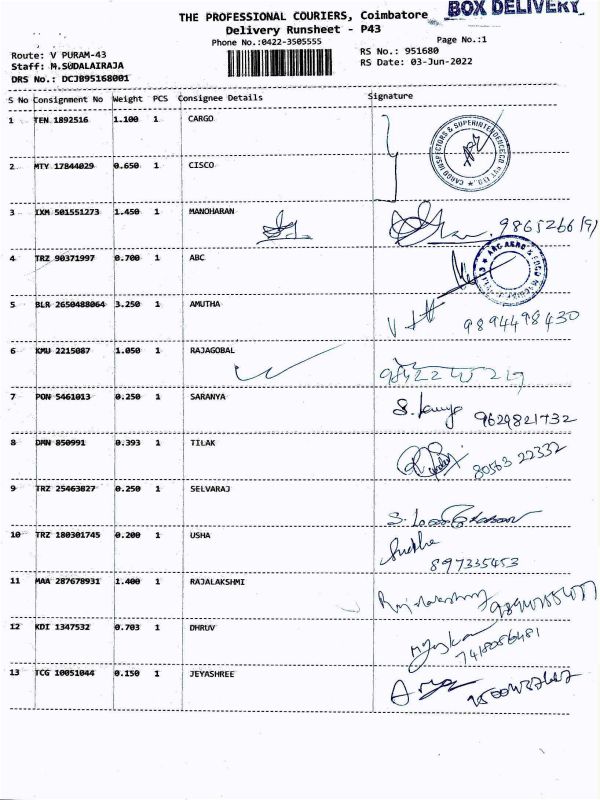 THE PROFESSIONAL COURIERS, Coimbatore BOX DELIVERY
Delivery Runsheet - P43
Phone No.:0422-3505555 Page No.:1
Route: V PURAM-43 RS No.: 951680
Staff: M.SUDALAIRAJA RS Date: 03-Jun-2022
DRS No.: DCJB95168001
S No Consignment No Weight PCS Consignee Details Signature
1 TEN 1892516 1.100 1 CARGO
2 MTY 17844029 0.650 1 CISCO
3 IXM 501551273 1.450 1 MANOHARAN
4 TRZ 90371997 0.700 1 ABC
5 BLR 2650488064 3.250 1 AMUTHA 9894498430
6 KMU 2215087 1.050 1 RAJAGOBAL
7 PON 5461013 0.250 1 SARANYA 9629821732
8 DMN 850991 0.393 1 TILAK 80563 22332
9 TRZ 25463827 0.250 1 SELVARAJ
10 TRZ 180301745 0.200 1 USHA 897335453
11 MAA 287678931 1.400 1 RAJALAKSHMI
12 KDI 1347532 0.703 1 DHRUV 7418056481
13 TCG 10051044 0.150 1 JEYASHREE